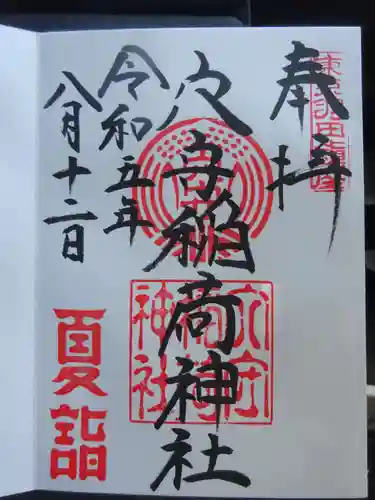 奉拝
東京羽田鎮座
穴守稲荷神社
穴守
稲荷
神社
令和五年
八月十二日
夏詣